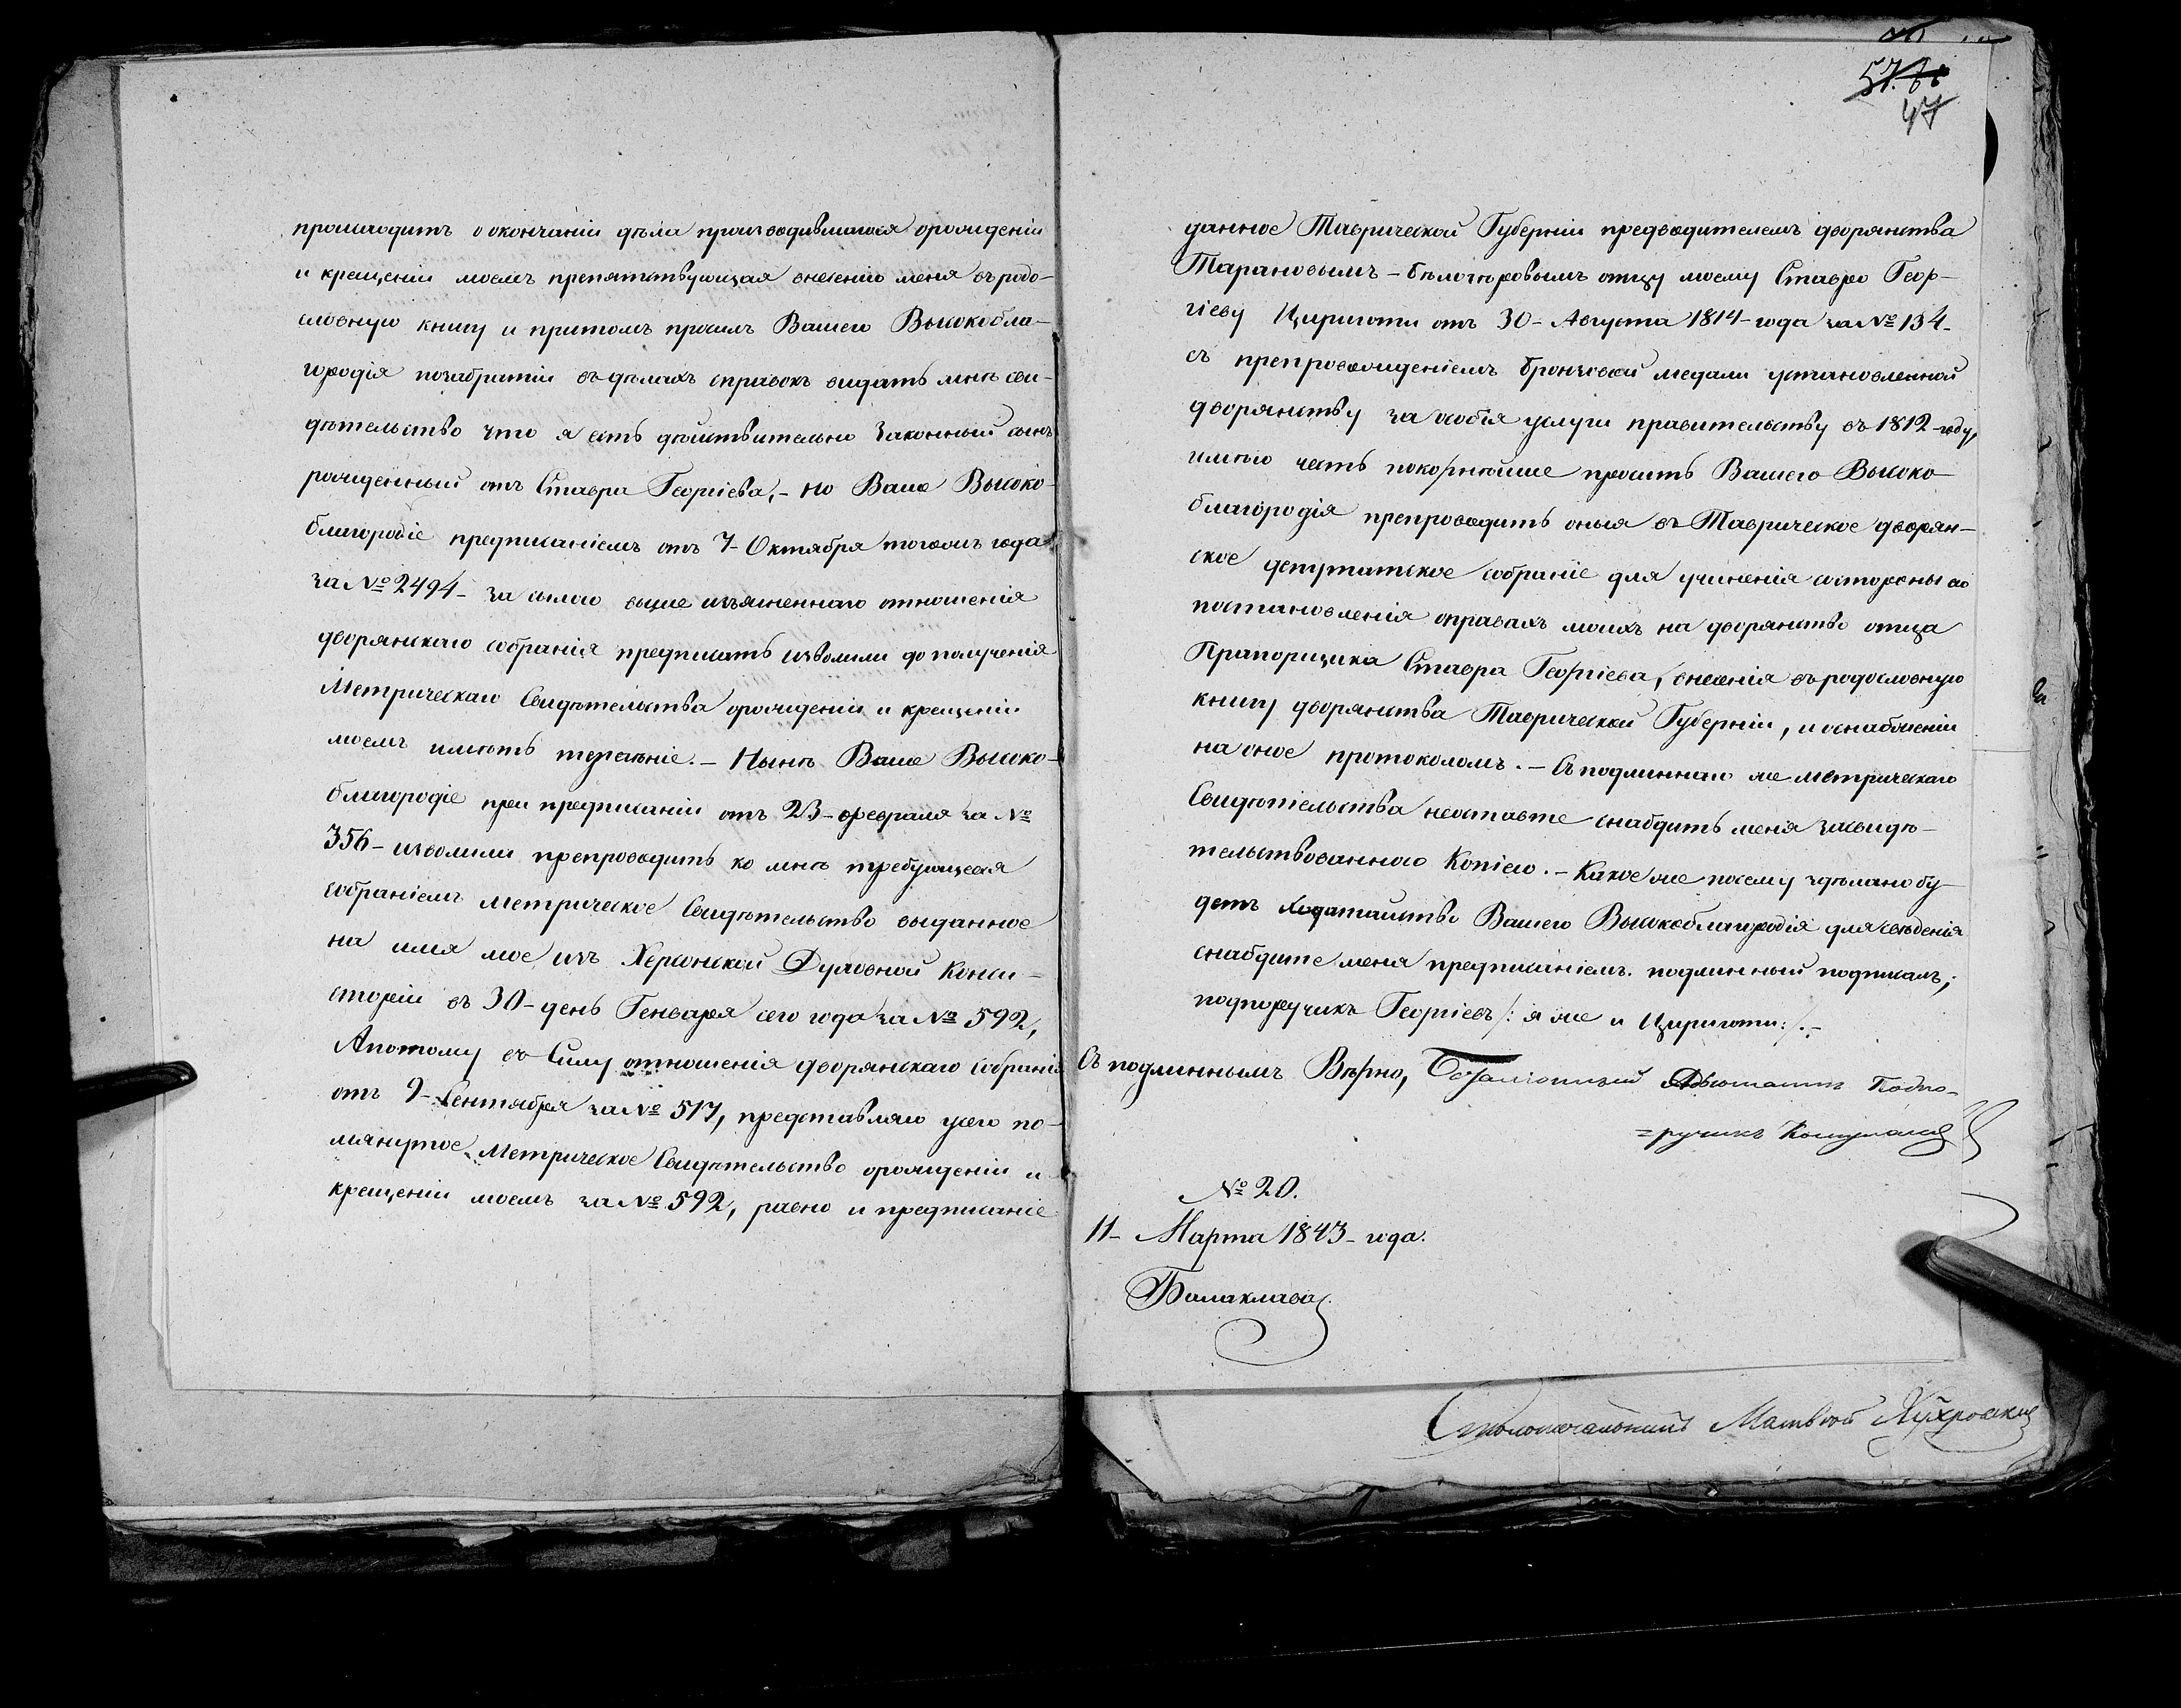 происходитъ о окончаніи дѣла производившагося орожденіи
и крещеніи моемъ препятствующая внесенію меня въ родо-
словную книгу и притомъ просилъ Вашего Высокобла-
городія позабратіи въ дѣлахъ справокъ видать мнѣ сви-
дѣтельство что я есть дѣйствительно Законный сынъ
рожденный отъ Ставра Георгіева, - но Ваше Высоко-
благородіе предписаніемъ отъ 7- Октября тогожъ года
за № 2494 - за силою выше изъясненнаго отношенія
дворянскаго собранія предписать изволили до полученія
Метрическаго Свидѣтельства орожденіи и крещеніи
моемъ имѣть терпѣніе. - Нынѣ Ваше Высоко-
благородіе при предписаніи отъ 23 - февраля за №
356 - изволили препроводить ко мнѣ требующееся
собраніемъ метрическое Свидѣтельство выданное
на имя мое изъ Херсонской Духовной Конси-
сторіи въ 30 - день Генваря сего года за № 592,
Апотому въ Силу отношенія дворянскаго собранія
отъ 9 - Сентября за № 517, представляю усего по-
мянутое Метрическое Свидѣтельство орожденіи и
крещеніи моемъ за № 592, равно и предписаніе
57.
47
данное Таврической Губерніи предводителемъ дворянства
Тарановымъ - Бѣлозеровымъ отцу моему Ставро Геор-
гіеву Цириготи отъ 30 - Августа 1814 - года за № 134 -
съ препровожденіемъ бронзовой медали установленной
дворянству за особія услуги правительству въ 1812 - году,
имѣю честь покорнѣйше просить Вашего Высоко-
благородія препроводить оныя въ Таврическое дворян-
ское депутатское собраніе для учиненія состороны ео
постановленія оправахъ моихъ на дворянство отца
Прапорщика Ставра Георгіева, внесенія въ родословную
книгу дворянства Таврической Губерніи, и оснабженіи
на оное протоколомъ. - Съ подлиннаго же метрическаго
Свидѣтельства неоставте снабдить меня засвидѣ-
тельствованною Копіею. - Какое же посему здѣлано бу-
детъ ходатайство Вашего Высокоблагородія для свѣденія
снабдите меня предписаніемъ. подлинный подписалъ,
подпоручикъ Георгіевъ /: я же и Цириготи: /. -
Съ подлиннымъ Вѣрно, Баталіонный Адьютантъ Подпо-
=ручикъ
№ 20.
11 - Марта 1843 - года.
Балаклава
Столоначальникъ Матвѣй